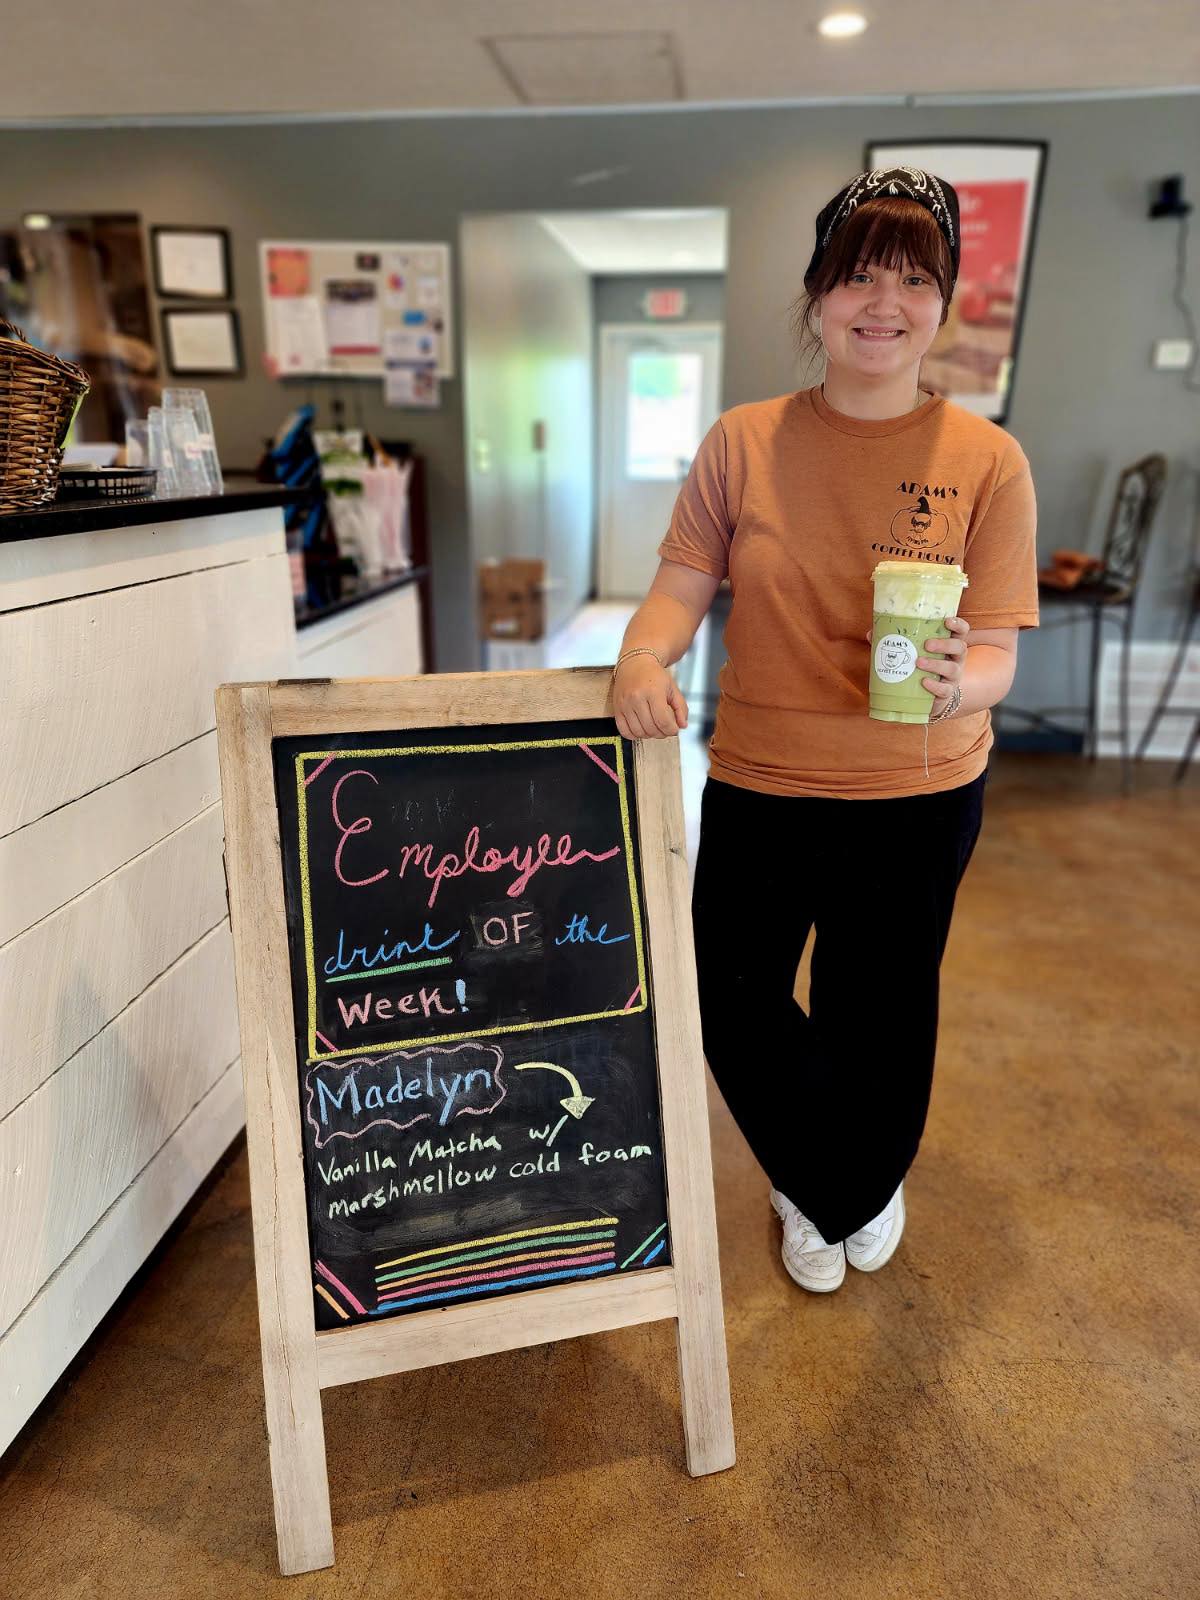 ADAM'S
COFFEE HOUSE
ADAM'S
COFFEE HOUSE
Employee
drink OF the
Week!
Madelyn
Vanilla Matcha w/
marshmellow cold foam